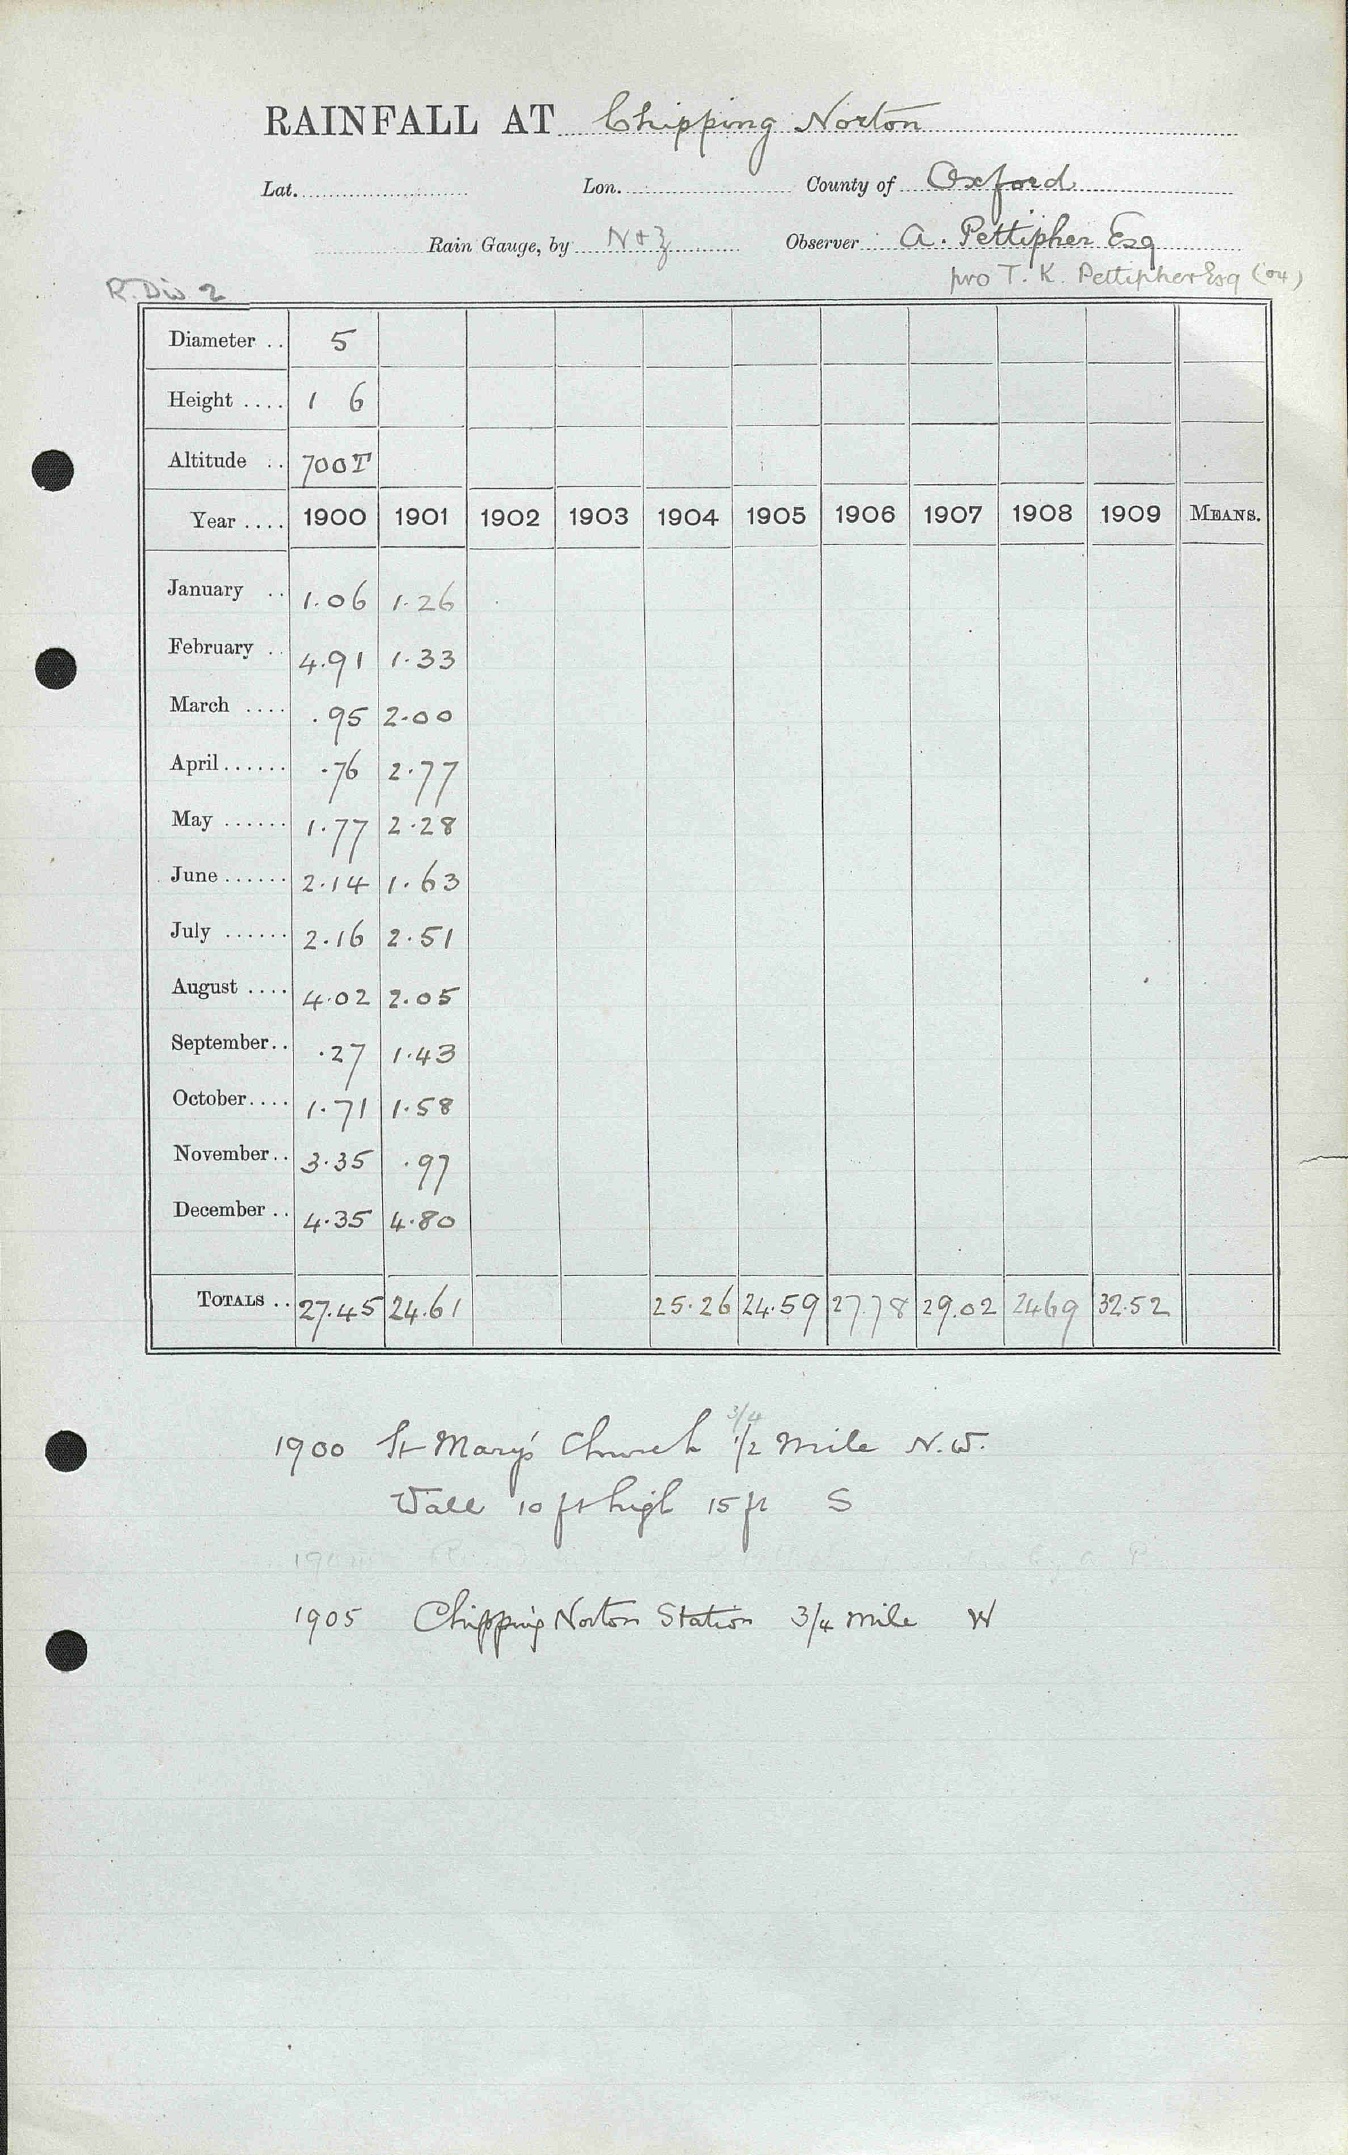 RAINFALL AT Chipping Norton
Lat. Lon. County of Oxford
Rain Gauge, by N+Z Observer A. Pettipher Esq
pro T. K. Pettipher Esq ('04)
R. Div 2
Diameter .. 5
Height .... 1 6
Altitude .. 700T
Year .... 1900 1901 1902 1903 1904 1905 1906 1907 1908 1909 MEANS.
January .. 1.06 1.26
February .. 4.91 1.33
March .... .95 2.00
April...... .76 2.77
May ...... 1.77 2.28
June...... 2.14 1.63
July ...... 2.16 2.51
August .... 4.02 2.05
September.. .27 1.43
October.... 1.71 1.58
November.. 3.35 .97
December .. 4.35 4.80
TOTALS .. 27.45 24.61 25.26 24.59 27.78 29.02 2469 32.52
3/4
1900 St Mary's Church 1/2 mile N.W.
Wall 10 ft high 15 ft S
1905 Chipping Norton Station 3/4 mile W